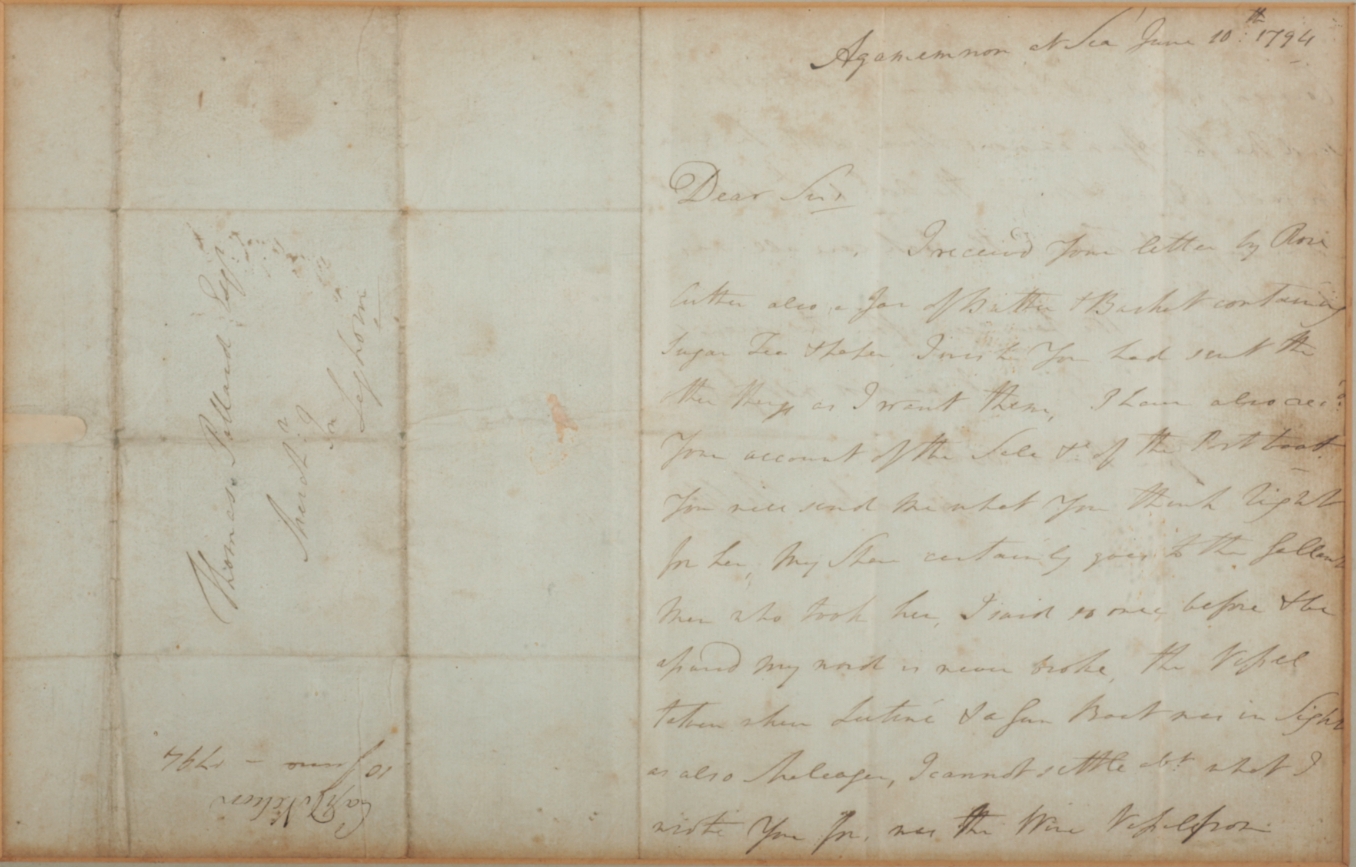 Agamemnon at Sea June 10th: 1794
Dear Sir
I received Your letter by Rose
Cutter also a Jar of Butter & Basket containing
Sugar Tea & I wish You had sent the
other things as I want them, I have also recd:
Your account of the Sale &c of the Port boat.
You will send me what You think right
for her, My Share certainly goes to the Gallant
Men who took her, I said so once before & be
assured my word is never broke, the Vessel
taken when Lutine & a Gun Boat was in Sight
as also Meleager, I cannot settle abt: what I
wrote You for, was the Wine Vessel from
Thomas Pollard Esqr:
Mercht:
in
Leghorn
10 June - 1794
Capt Nelson